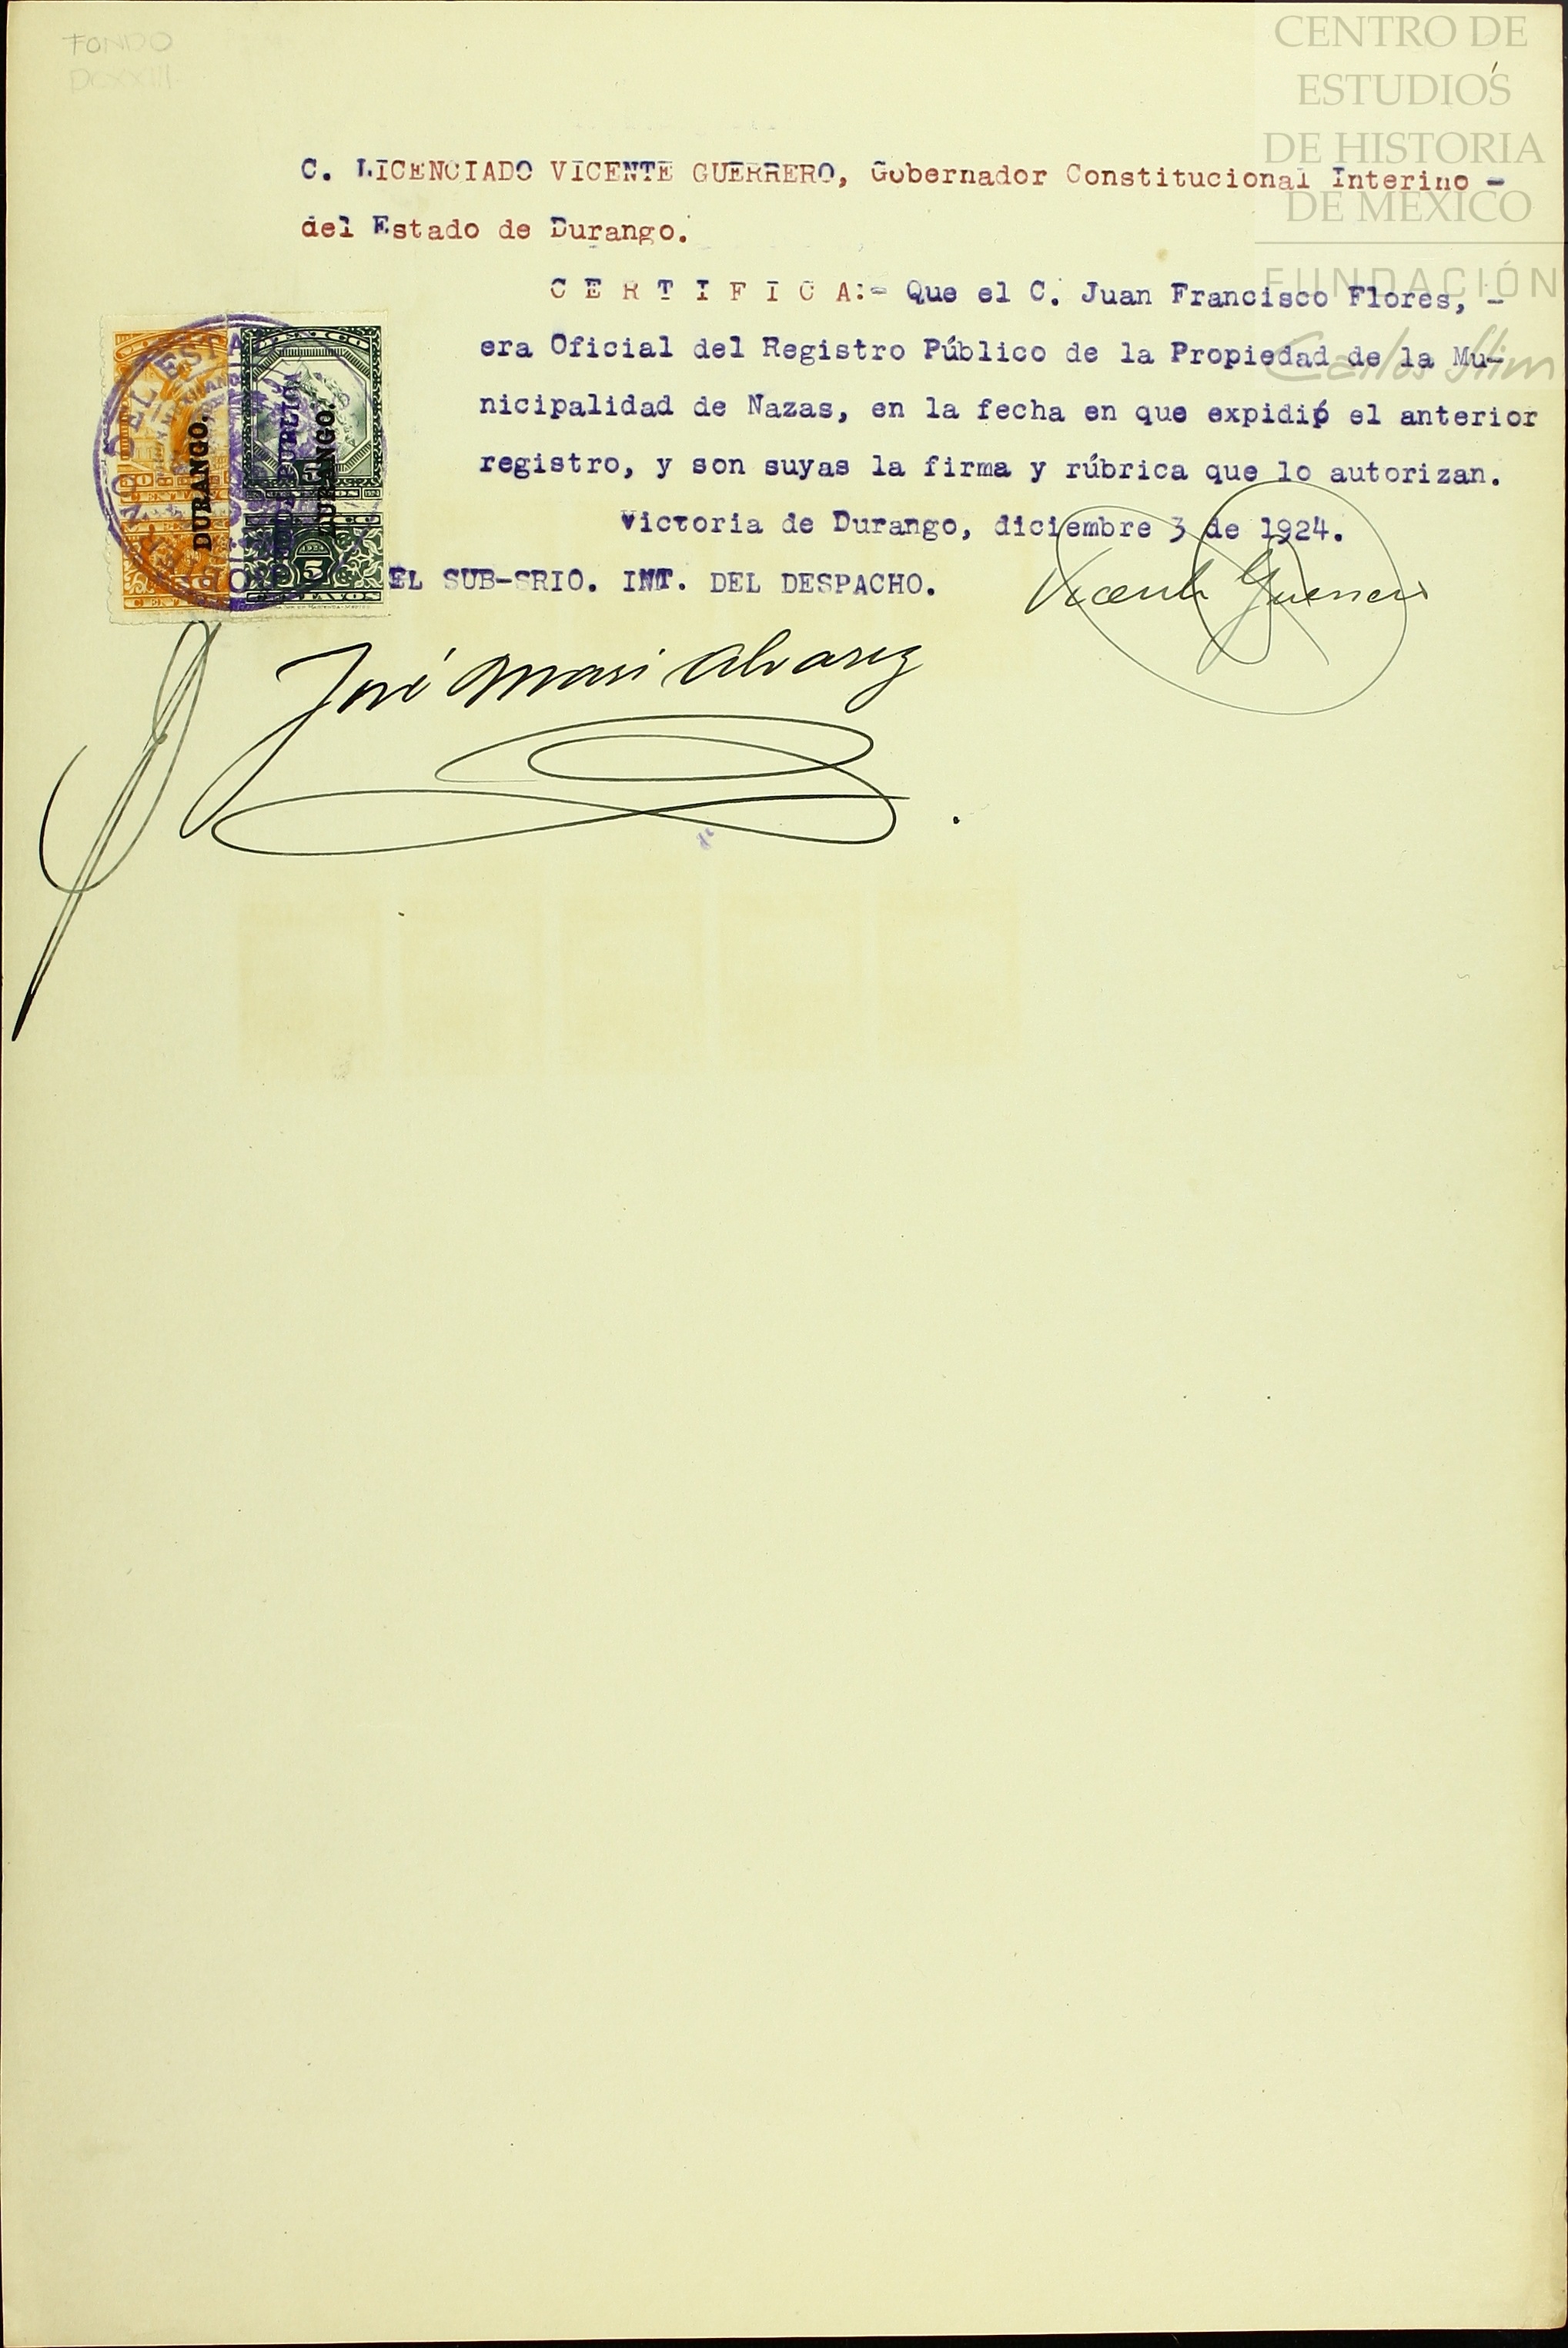 FONDO
DCXXIII
CENTRO DE
ESTUDIOS
DE HISTORIA
DE MÉXICO
FUNDACIÓN
Carlos Slim
C. LICENCIADO VICENTE GUERRERO, Gobernador Constitucional Interino -
del Estado de Durango.
C E R T I F I C A:- Que el C. Juan Francisco Flores, -
era Oficial del Registro Público de la Propiedad de la Mu-
nicipalidad de Nazas, en la fecha en que expidió el anterior
registro, y son suyas la firma y rúbrica que lo autorizan.
Victoria de Durango, diciembre 3 de 1924.
EL SUB-SRIO. INT. DEL DESPACHO.
Vicente Guerrero
José Mari Alvarez
DURANGO.
DURANGO.
5